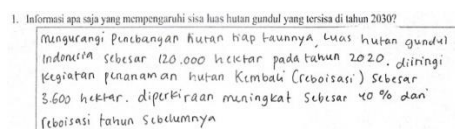 1. Informasi apa saja yang mempengaruhi sisa luas hutan gundul yang tersisa di tahun 2030?
mengurangi penebangan hutan tiap taunnya, Luas hutan gundul
Indonesia sebesar 120.000 hektar pada tahun 2020. diiringi
kegiatan penanaman hutan kembali (reboisasi) sebesar
3.600 hektar. diperkiraan meningkat sebesar 40 % dari
reboisasi tahun sebelumnya